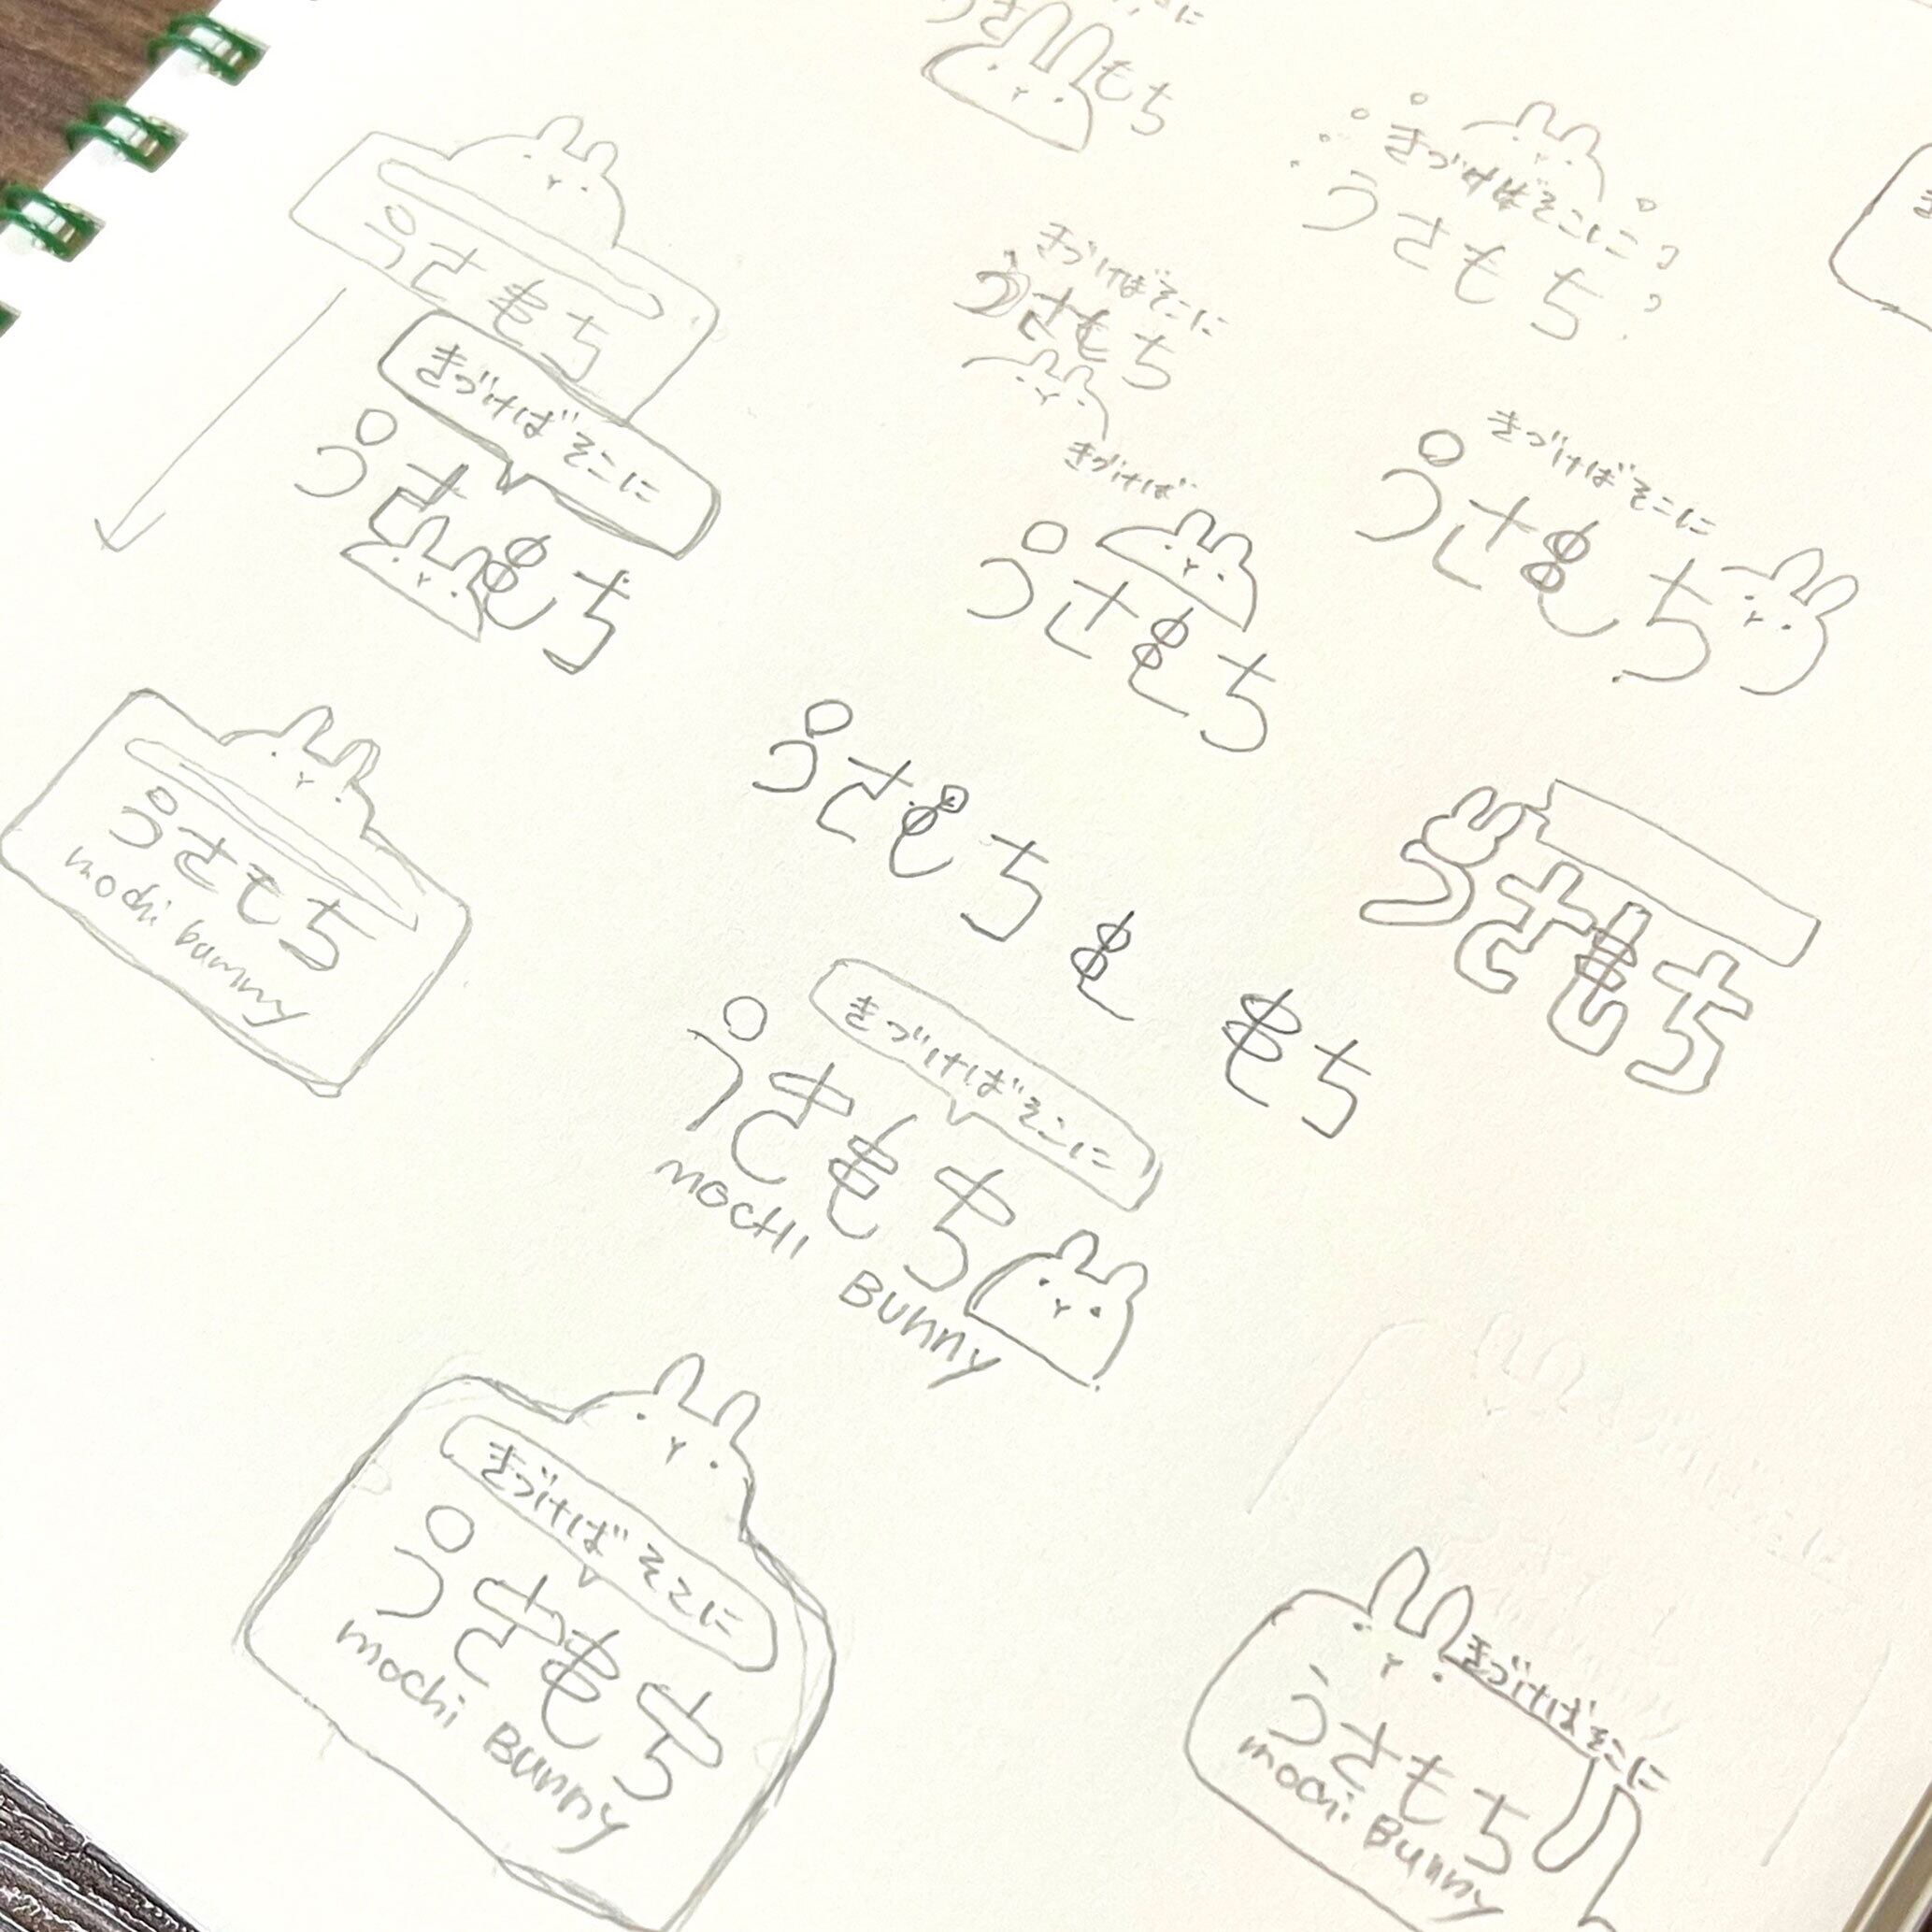 うさもち
きづけばそこに
うさもち
うさもち
きづけばそこに
うさもち
きづけばそこに
うさもち
きづけば
うさもち
きづけばそこに
うさもち
うさもち
mochi bunny
うさもち
も
もち
うさもち
きづけばそこに
うさもち
MOCHI Bunny
きづけばそこに
うさもち
mochi Bunny
きづけばそこに
うさもち
mochi Bunny